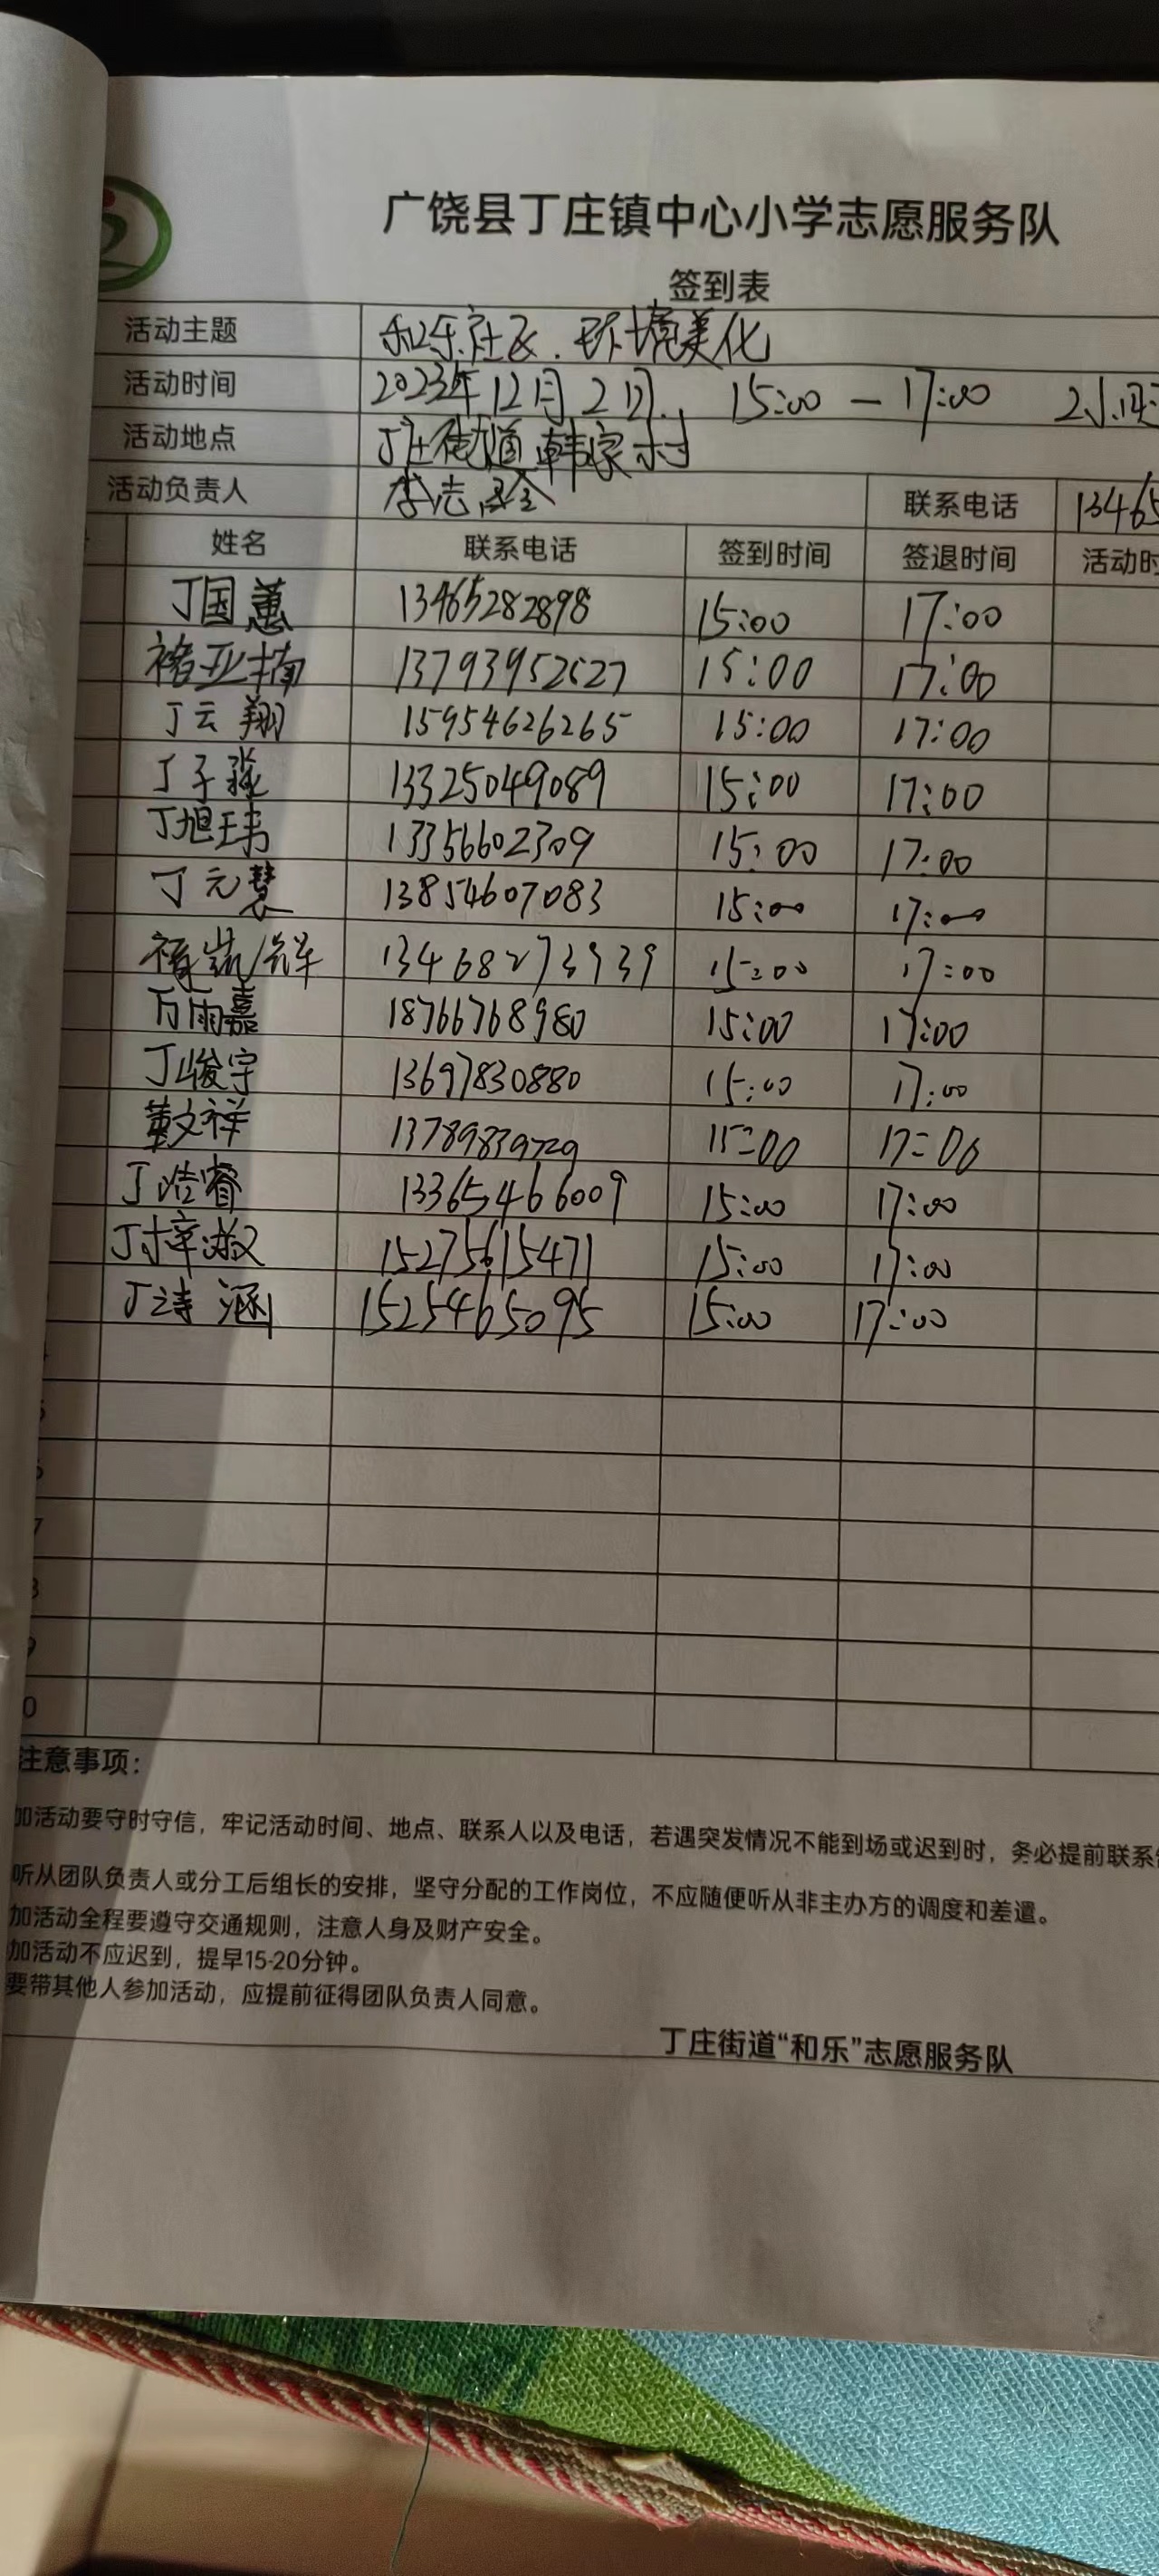 广饶县丁庄镇中心小学志愿服务队
签到表
活动主题 和乐社区.环境美化
活动时间 2023年12月2日. 15:00 — 17:00 2小时
活动地点 丁庄街道韩家村
活动负责人 李志 联系电话 13465
姓名 联系电话 签到时间 签退时间 活动时
丁国蕙 13465282898 15:00 17:00
褚亚楠 13793952627 15:00 17:00
丁云翔 15954626265 15:00 17:00
丁子淼 13325049089 15:00 17:00
丁旭玮 13356602309 15:00 17:00
丁元慧 13854607083 15:00 17:00
13468273939 15:00 17:00
万雨嘉 18766768980 15:00 17:00
丁峻宇 13697830880 15:00 17:00
董文祥 13789839729 15:00 17:00
丁浩睿 13365466009 15:00 17:00
丁梓淑 15275615471 15:00 17:00
丁诗涵 15254465095 15:00 17:00
5
6
7
8
9
0
注意事项：
加活动要守时守信，牢记活动时间、地点、联系人以及电话，若遇突发情况不能到场或迟到时，务必提前联系
听从团队负责人或分工后组长的安排，坚守分配的工作岗位，不应随便听从非主办方的调度和差遣。
加活动全程要遵守交通规则，注意人身及财产安全。
加活动不应迟到，提早15-20分钟。
要带其他人参加活动，应提前征得团队负责人同意。
丁庄街道“和乐”志愿服务队